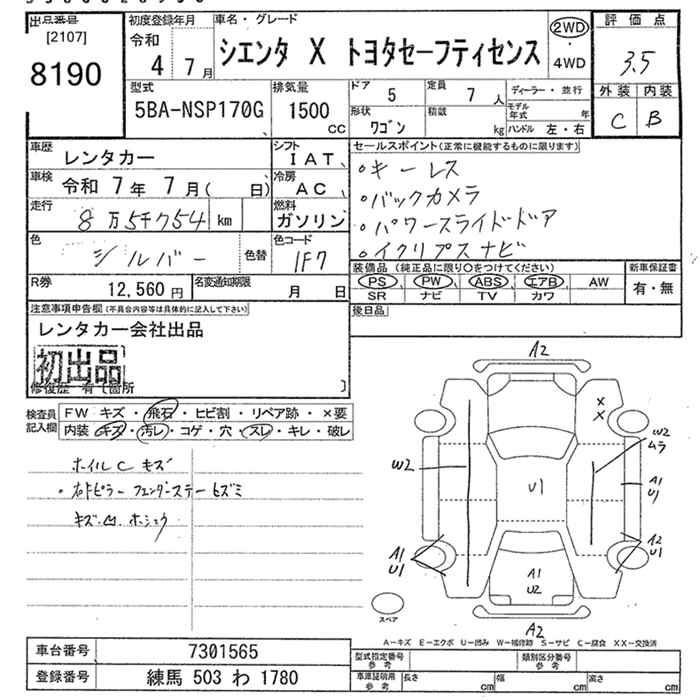 出品番号
[2107]
8190
初度登録年月
令和
4 7月
車名・グレード
シエンタ X トヨタセーフティセンス
2WD
・
4WD
評価点
3.5
外装 内装
C B
型式
5BA-NSP170G
排気量
1500
cc
ドア 5
定員 7 人
ディーラー・並行
形状 ワゴン
積載 kg
モデル年式 年
ハンドル 左・右
車歴 レンタカー
シフト IAT
車検 令和 7年 7月( 日)
冷房 AC
走行 8万5千754 km
燃料 ガソリン
色 シルバー
色替
色コード 1F7
R券 12,560円
名変通知期限 月 日
セールスポイント(正常に機能するものに限ります)
・キーレス
・バックカメラ
・パワースライドドア
・イクリプスナビ
装備品(純正品に限り○をつけてください)
PS PW ABS エアB AW
SR ナビ TV カワ
新車保証書
有・無
後日品
注意事項申告欄(不具合内容等は具体的に記入して下さい)
レンタカー会社出品
初出品
修復歴 有 [箇所 ]
検査員記入欄
FW キズ・飛石・ヒビ割・リペア跡・×要
内装・キズ・汚レ・コゲ・穴・スレ・キレ・破レ
ホイルC キズ
・右ドピラー フェンダーステー ヒズミ
キズ・凹 ホシュウ
A2
X
X
W2
ムラ
W2
U1
A1
U1
A2
U1
A1
U1
A1
U2
A2
スペア
A-キズ E-エクボ U-凹み W-補修跡 S-サビ C-腐食 XX-交換済
車台番号 7301565
登録番号 練馬 503 わ 1780
型式指定番号
参考
類別区分番号
参考
車庫証明用
参考
長さ cm
幅 cm
高さ cm